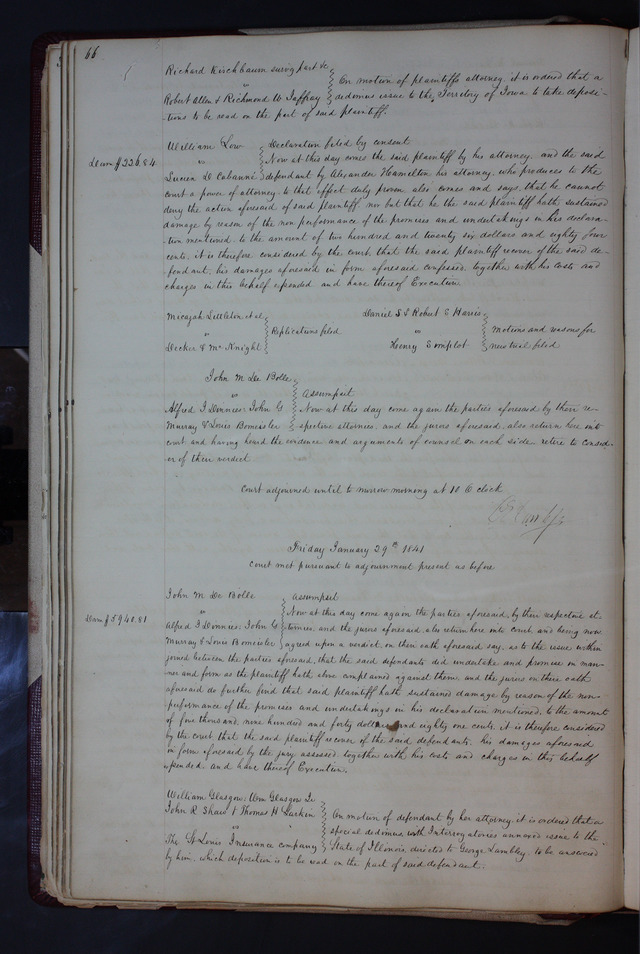 66
Richard Kirchbaum surving part &c
vs
On motion of plaintiffs attorney, it is ordered that a
Robert Allen & Richmond W Jaffray
dedimus issue to the Territory of Iowa to take deposi-
tions to be read on the part of said plaintiff.
William Low
Declaration filed by consent
Dam $226.84
vs
Now at this day comes the said plaintiff by his attorney, and the said
Lucien D Cabanni
defendant by Alexander Hamilton his attorney, who produces to the
court a power of attorney to that effect duly proven also comes and says, that he cannot
deny the action aforesaid of said plaintiff nor but that he the said plaintiff hath sustained
damage by reason of the non performance of the promises and undertakings in his declara-
tion mentioned, to the amount of two hundred and twenty six dollars and eighty four
cents, it is therefore considered by the court, that the said plaintiff recover of the said de-
fendant, his damages aforesaid in form aforesaid confessed, together with his costs and
charges in this behalf expended and have thereof Execution
Micajah Littleton et al
vs
Decker & McKnight
Replications filed
Daniel S & Robert C Harris
vs
Henry
Motions and reasons for
new trial filed
John M De Bolle
vs
Assumpsit
Alfred J Downes, John G
Now at this day come again the parties aforesaid by their re-
Murray & Louis Bomeister
spective attornies, and the jurors aforesaid, also return here into
court and having heard the evidence and arguments of counsel on each side retire to consid-
er of their verdict
Court adjourned until to morrow morning at 10 O clock
Friday January 29th 1841
Court met pursuant to adjournment present as before
John M De Bolle
Assumpsit
Dam $5940.81
vs
Now at this day come again the parties aforesaid, by their respective at-
Alfred J Downes, John G
tornies, and the jurors aforesaid, also return here into court and being now
Murray & Louis Bomeister
agreed upon a verdict, on their oath aforesaid say, as to the issue within
joined between the parties aforesaid, that the said defendants did undertake and promise in man-
ner and form as the plaintiff hath above complained against them and the jurors on their oath
aforesaid do further find that said plaintiff hath sustained damage by reason of the non-
performance of the promises and undertakings in his declaration mentioned, to the amount
of five thousand, nine hundred and forty dollars and eighty one cents, it is therefore considered
by the court that the said plaintiff recover of the said defendants, his damages aforesaid
in form aforesaid by the jury assessed, together with his costs and charges in this behalf
expended and have thereof Execution.
William Glasgow, Wm Glasgow Jr
John R Shaw & Thomas H Larkin
vs
The St Louis Insurance company
On motion of defendant by her attorney, it is ordered that a
special dedimus with Interrogatories annexed issue to the
State of Illinois directed to George Lambley, to be answered
by him, which deposition is to be read on the part of said defendant.